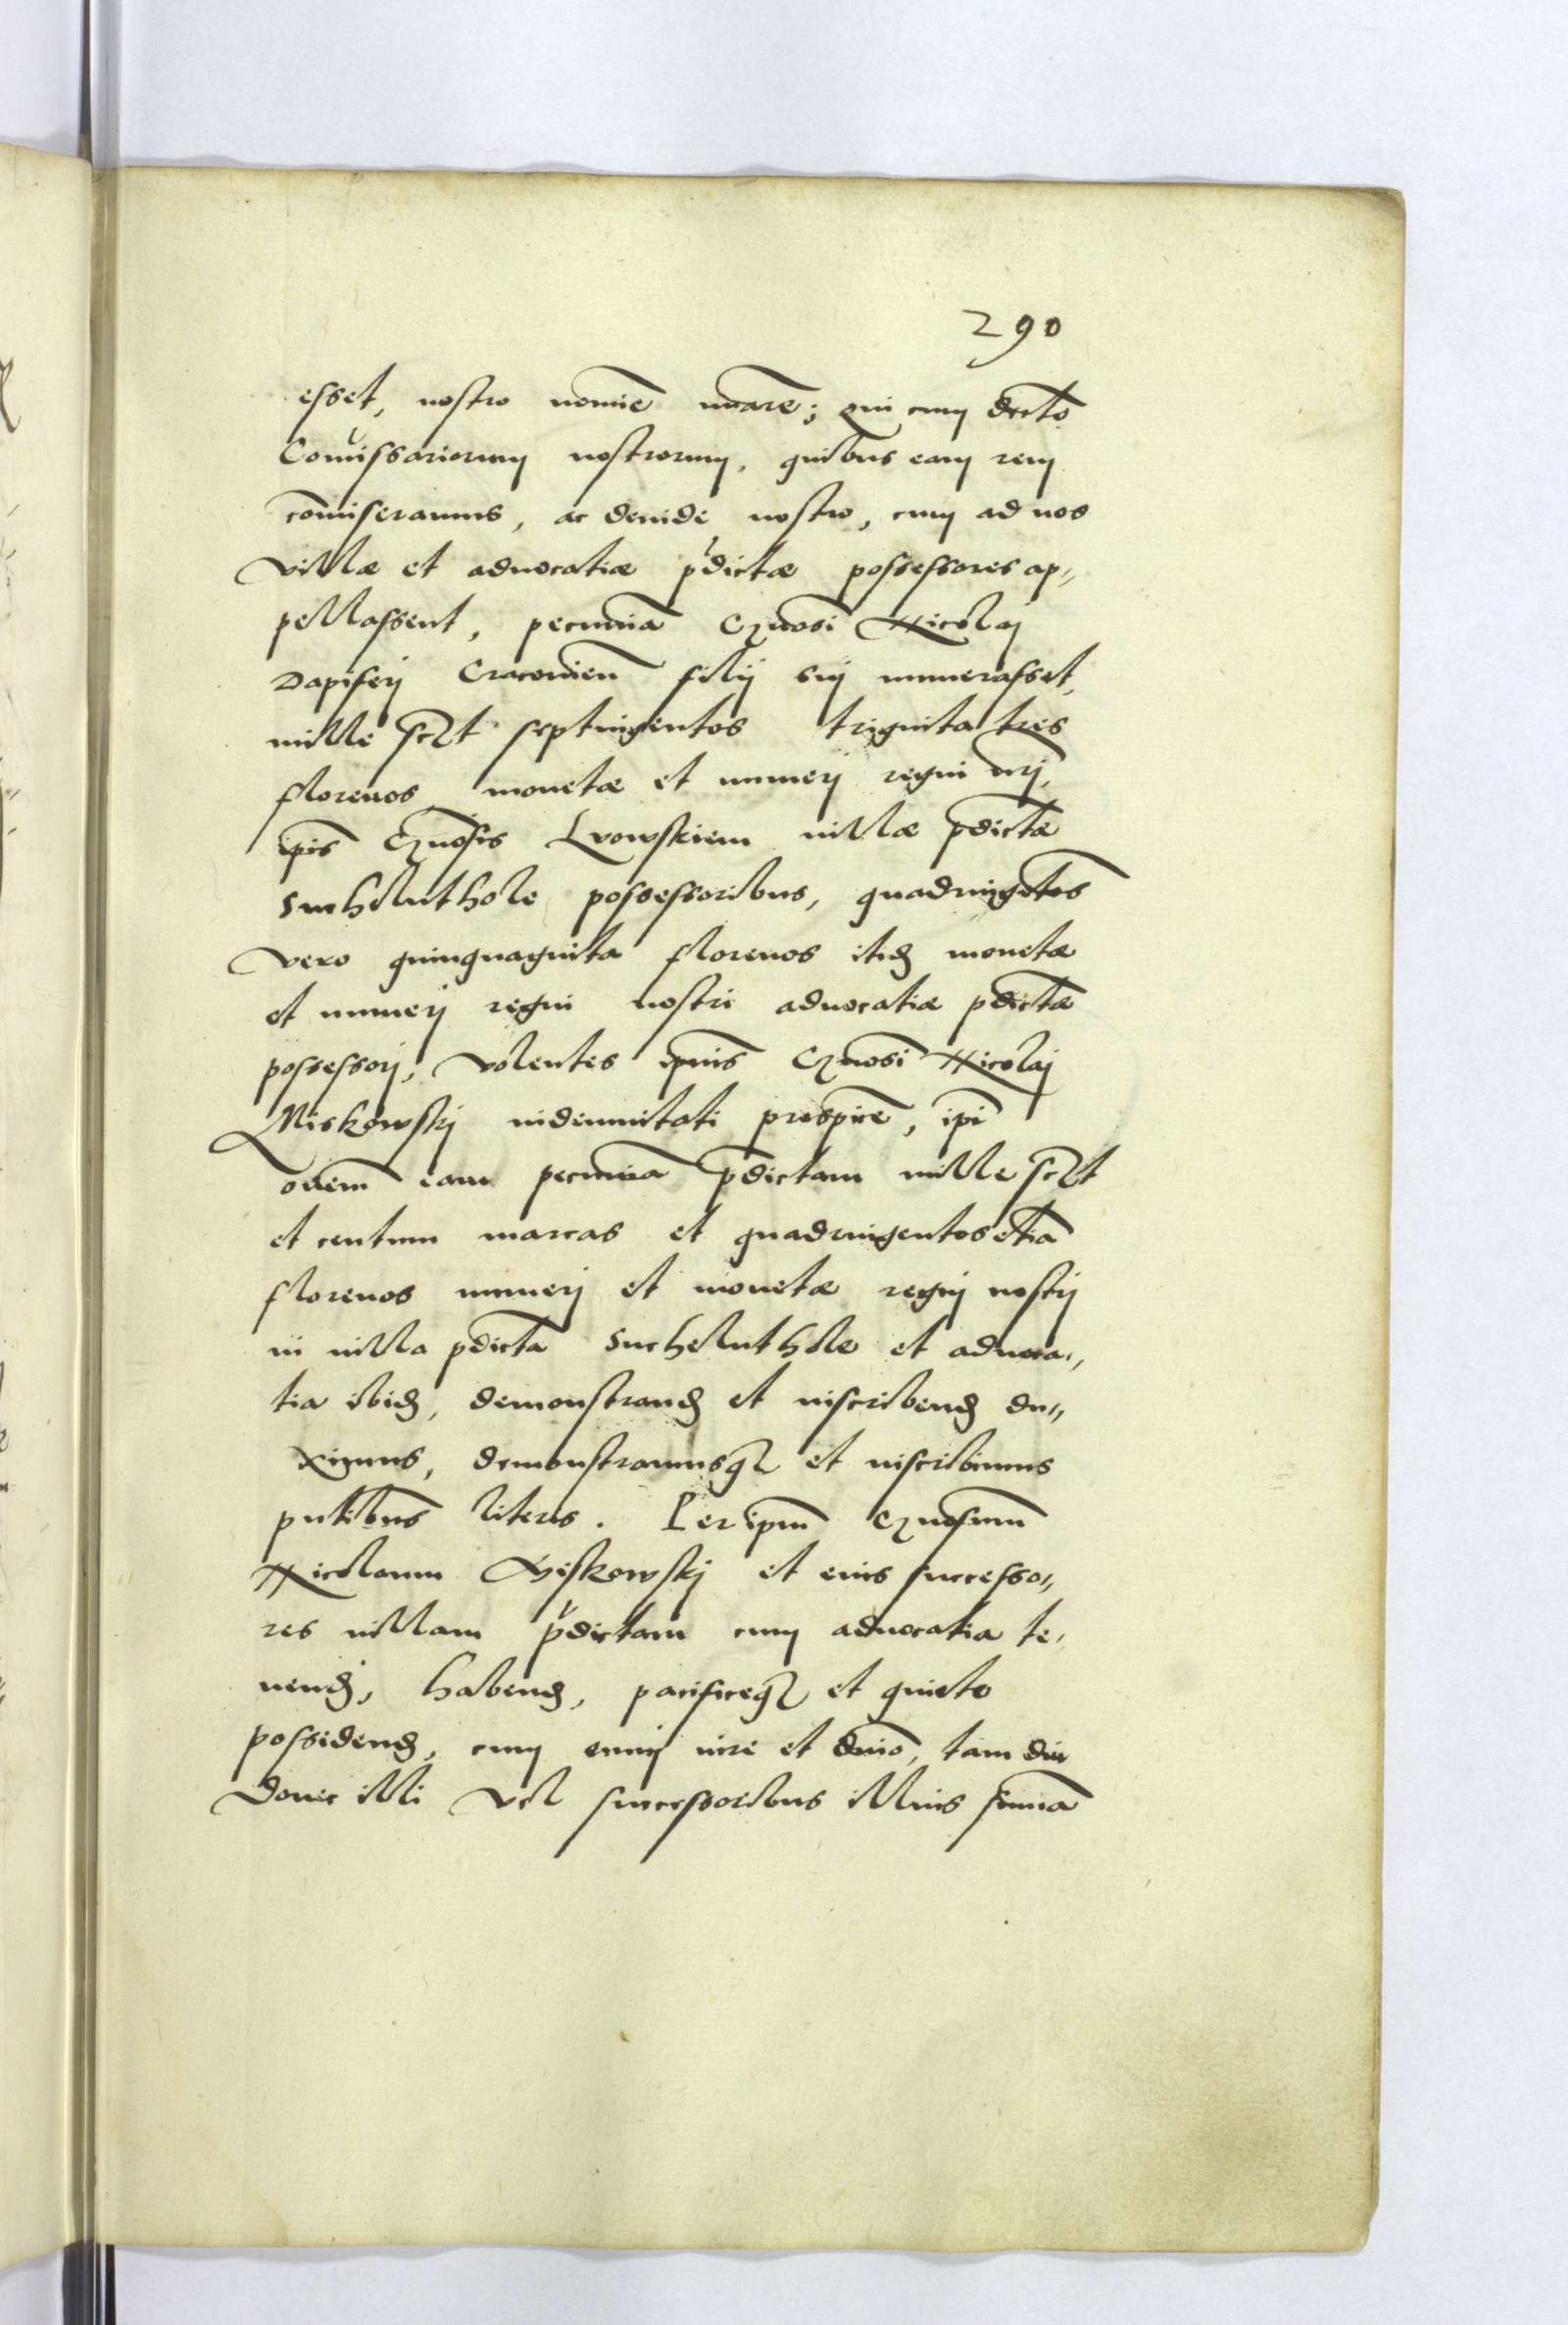 290
esset, nostro nomīe nūarē; qui cum dectō
Com̄issariorum nostrorum, quibus eam rem
com̄iseramus, ac deinde nostro, cum ad nos
villæ et advocatiæ p̄dictæ possessores ap„
pellassent, pecuniā Gn̄osi Nicolaj
Dapiferj Cracovien̄ filij suj numerasset,
mille sczt septingentos triginta tres
florenos monetæ et numerj regni nrj̄,
ip̄is Gn̄osis Lwowskiem villæ p̄dictæ
Sucheluthole possessoribus, quadringētos
vero quinquaginta florenos itid monetæ
et numerj regni nostri advocatiæ p̄dictæ
possessorj, volentes ip̄ius Gn̄osi Nicolaj
Miskowskj indemnitati prospicē, ip̄i
om̄em eam pecuniā p̄dictam mille sczt
et centum marcas et quadringentos etiā
florenos numerj et monetæ regnj nostrj
in villa p̄dicta Sucheluthole et advoca„
tia ibid, demonstrand et inscribend du„
ximus, demonstramusq et inscribimus
pn̄tibus literis. Per ip̄m Gn̄osum
Nicolaum Miskowskj et eius successo„
res villam p̄dictam cum advocatia te„
nend, habend, pacificeq et quiete
possidend, cum omnj iure et dn̄io, tam diu
donec illi vel successoribus illius sum̄a